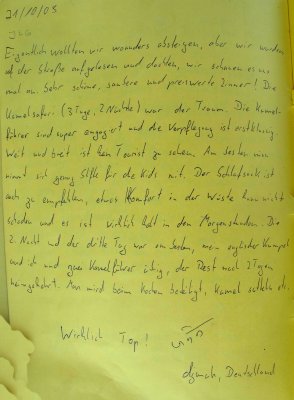 21/10/05
Eigentlich wollten wir woanders absteigen, aber wir wurden
auf der Straße aufgelesen und dachten, wir schauen es uns
mal an. Sehr schöne, saubere und preiswerte Zimmer! Die
Kamelsafari (3 Tage, 2 Nächte) war der Traum. Die Kamel-
führer sind super engagiert und die Verpflegung ist erstklassig.
Weit und breit ist kein Tourist zu sehen. Am besten man
nimmt sich genug Stifte für die Kids mit. Der Schlafsack ist
auch zu empfehlen, etwas Komfort in der Wüste kann nicht
schaden und es ist wirklich kalt in den Morgenstunden. Die
2. Nacht und der dritte Tag war am besten, mein englischer Kumpel
und ich und zwei Kamelführer übrig, der Rest nach 2 Tagen
heimgekehrt. Man wird beim Kochen beteiligt, Kamel satteln etc.
Wirklich Top!
Deutschland